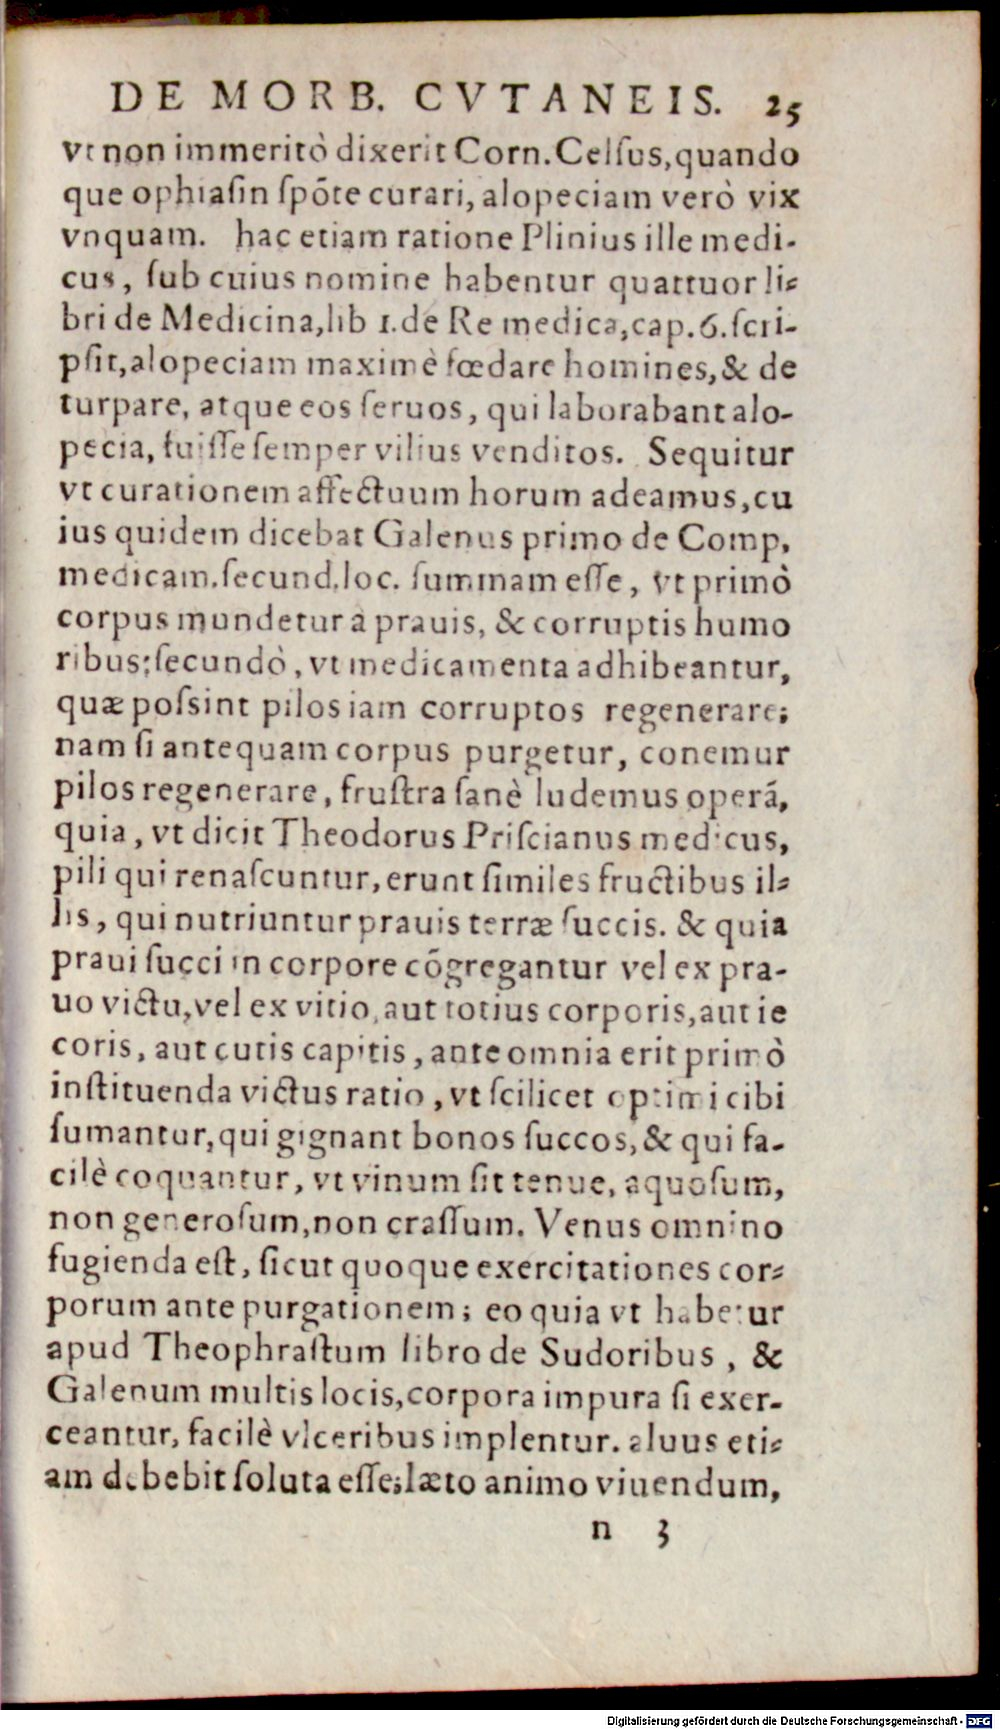 DE MORB. CVTANEIS. 25
vt non immeritò dixerit Corn. Celſus, quando
que ophiaſin ſpõte curari, alopeciam verò vix
vnquam. hac etiam ratione Plinius ille medi-
cus, ſub cuius nomine habentur quattuor li-
bri de Medicina, lib 1. de Re medica, cap. 6. ſcri-
pſit, alopeciam maximè fœdare homines, & de
turpare, atque eos ſeruos, qui laborabant alo-
pecia, fuiſſe ſemper vilius venditos. Sequitur
vt curationem affectuum horum adeamus, cu
ius quidem dicebat Galenus primo de Comp,
medicam. ſecund. loc. ſummam eſſe, vt primò
corpus mundetur à prauis, & corruptis humo
ribus; ſecundò, vt medicamenta adhibeantur,
quæ poſsint pilos iam corruptos regenerare;
nam ſi antequam corpus purgetur, conemur
pilos regenerare, fruſtra ſanè ludemus operã,
quia, vt dicit Theodorus Priſcianus medicus,
pili qui renaſcuntur, erunt ſimiles fructibus il-
lis, qui nutriuntur prauis terræ ſuccis. & quia
praui ſucci in corpore cõgregantur vel ex pra-
uo victu, vel ex vitio, aut totius corporis, aut ie
coris, aut cutis capitis, ante omnia erit primò
inſtituenda victus ratio, vt ſcilicet optimi cibi
ſumantur, qui gignant bonos ſuccos, & qui fa-
cilè coquantur, vt vinum ſit tenue, aquoſum,
non generoſum, non craſſum. Venus omnino
fugienda eſt, ſicut quoque exercitationes cor-
porum ante purgationem; eo quia vt habetur
apud Theophraſtum libro de Sudoribus, &
Galenum multis locis, corpora impura ſi exer-
ceantur, facilè vlceribus implentur. aluus eti-
am debebit ſoluta eſſe; læto animo viuendum,
n 3
Digitalisierung gefördert durch die Deutsche Forschungsgemeinschaft - DFG